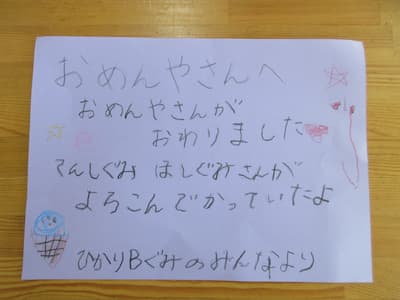 おめんやさんへ
おめんやさんが
おわりました
てんしぐみ ほしぐみさんが
よろこんでかっていたよ
ひかりBぐみのみんなより